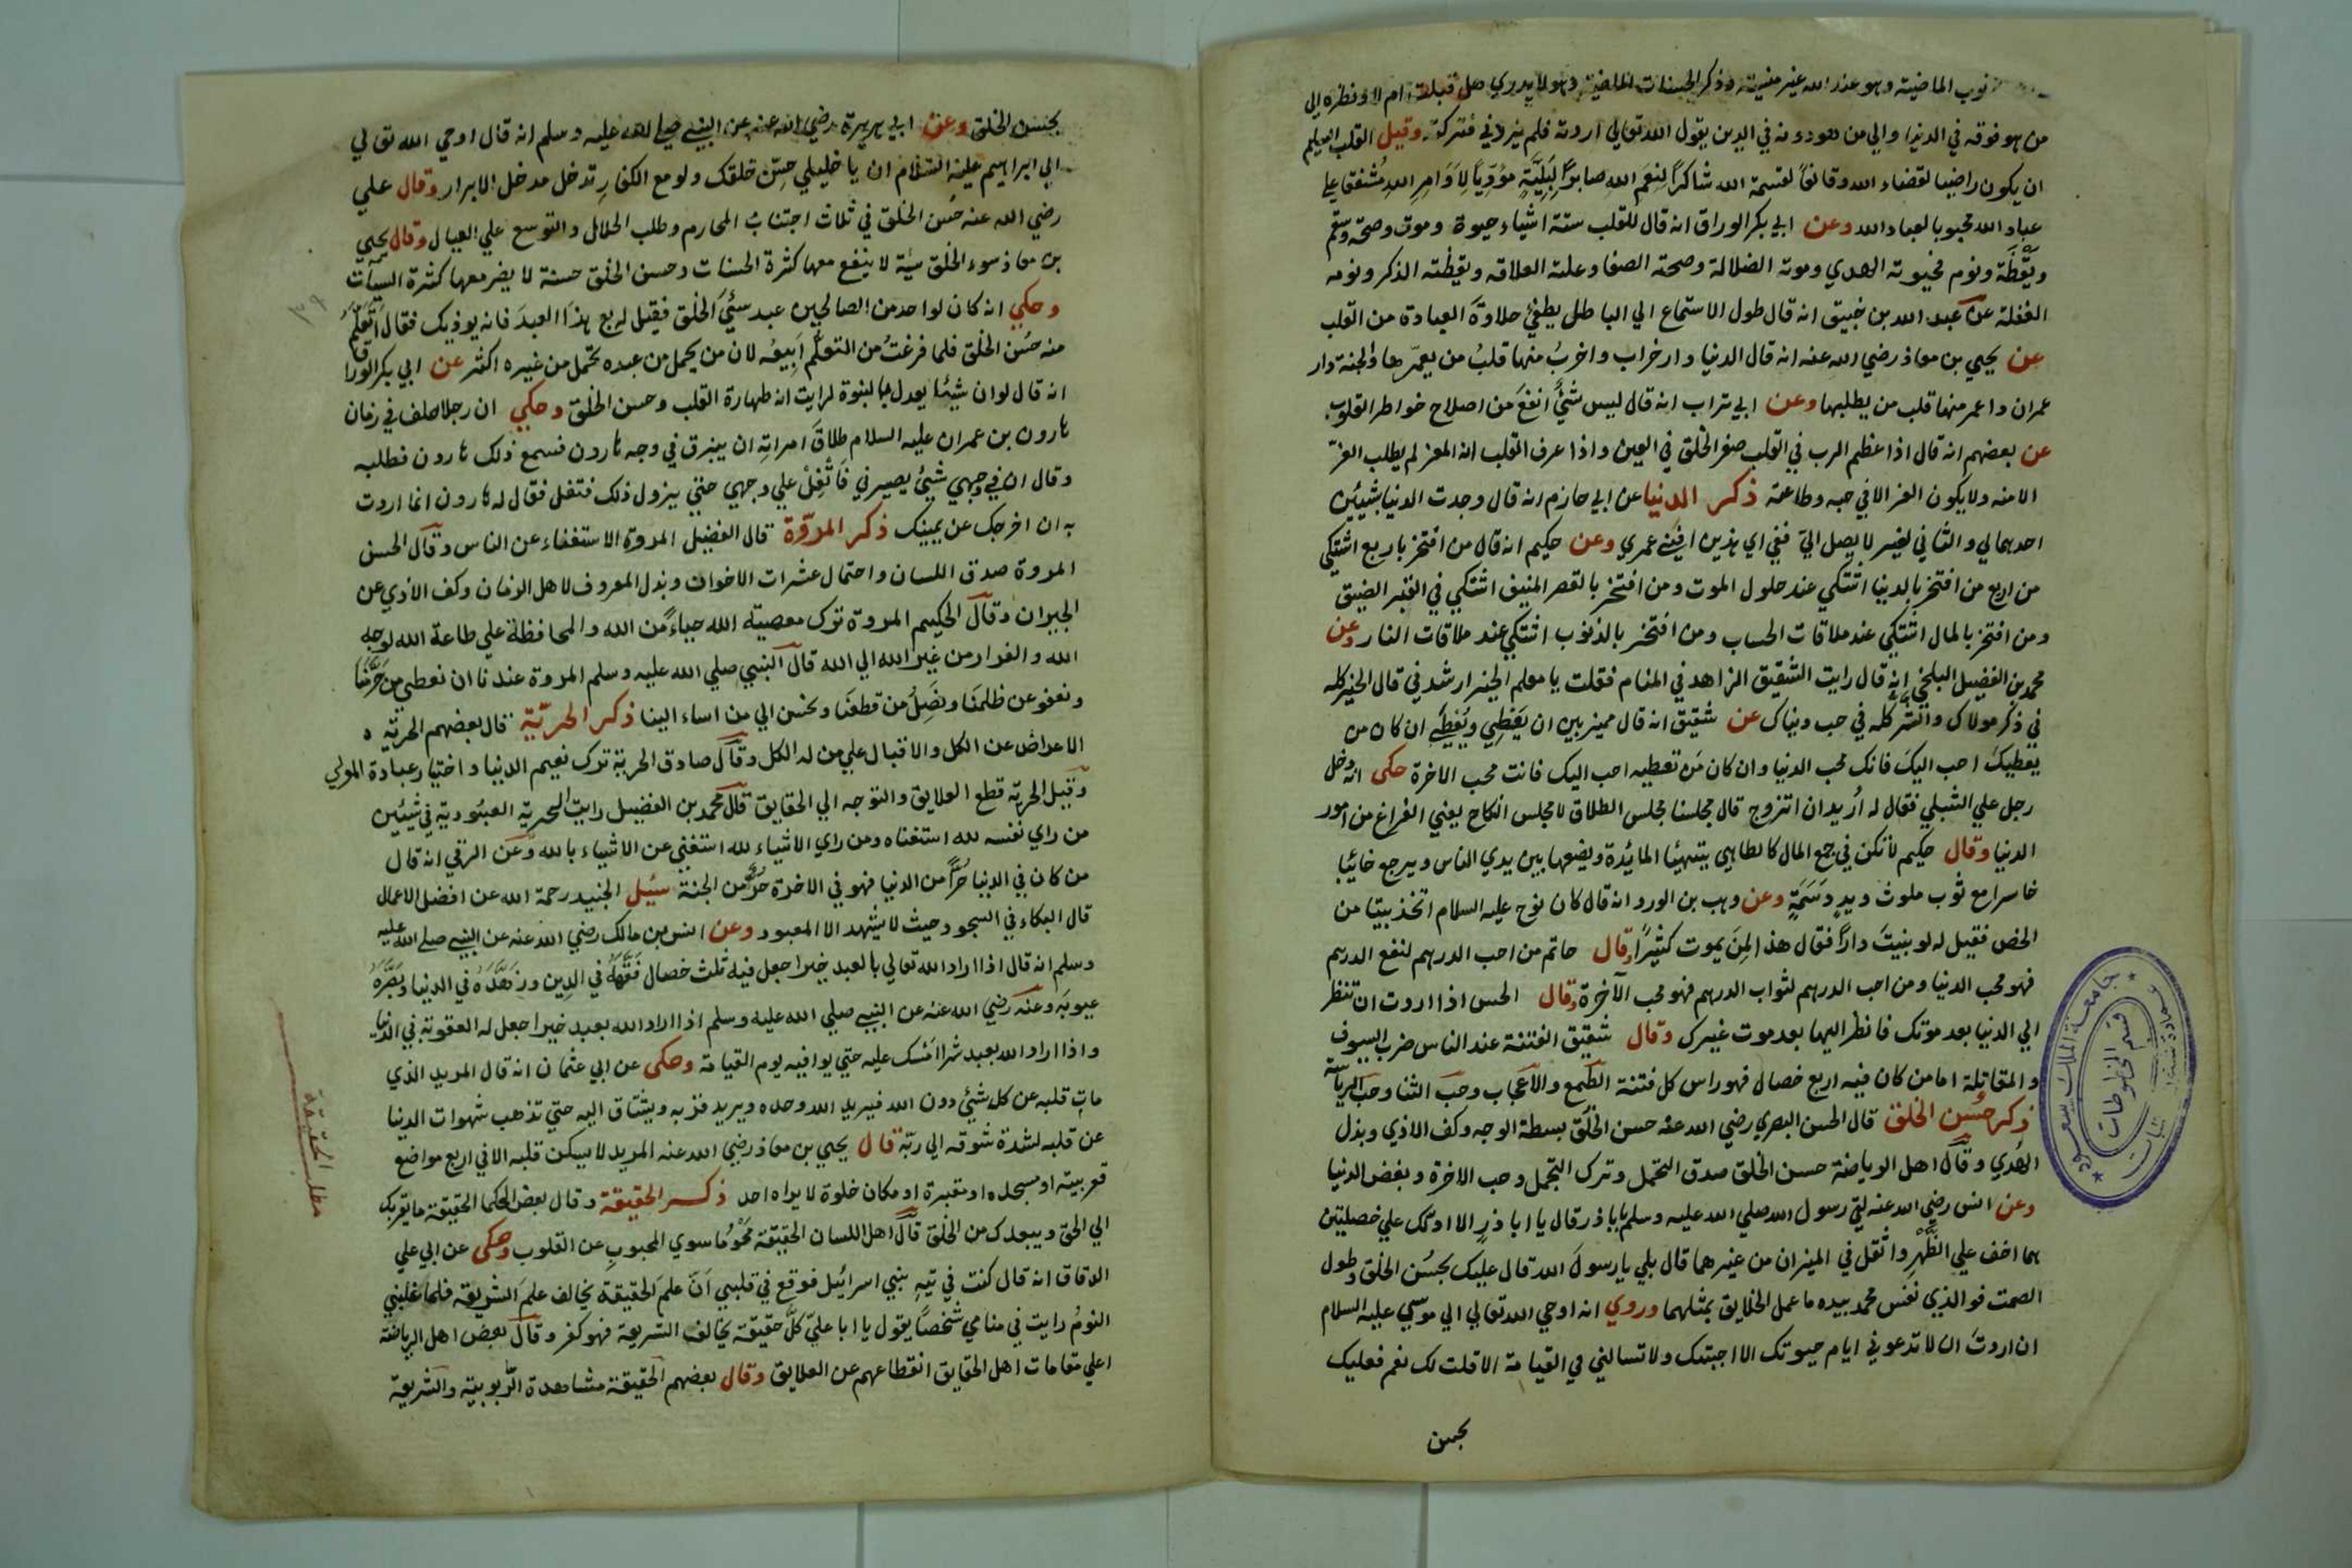 نوب الماضية وهو عند الله غير منسية وذكر الحسنات الماضية وهو لا يدري هل قبلت ام لا ونظره الي
من هو فوقه في الدنيا والي من هو دونه في الدين يقول الله تعالي اردته فلم يردني فتركته وقيل القلب السليم
ان يكون راضيا لقضاء الله وقانعًا لقسمة الله شاكرًا لِنِعَم الله صابرًا لِبَلِيَّةٍ مؤدِّيًا لِاَوَامِرِ اللهِ مُشفقا علي
عباد الله محبوبا لعباد الله وعن ابي بكر الوراق انه قال للقلب ستة اشياء حيوة وموت وصحة وسقم
ويَقْظَة ونوم فحيوته الهدي وموته الضلالة وصحته الصفا وعلته العلاقه ويقظته الذكر ونومه
الغفلة عن عبد الله بن خبيق انه قال طول الاستماع الي الباطل يطفئ حلاوةَ العبادة من القلب
عن يحيي بن معاذ رضي الله عنه انه قال الدنيا دار خراب واخربُ منها قلبُ من يعمّرها والجنة دار
عمران واعمر منها قلب من يطلبها وعن ابي تراب انه قال ليس شيٌ انفعَ من اصلاح خواطر القلوب
عن بعضهم انه قال اذا عظم الرب في القلب صغر الخلق في العين واذا عرف القلب انه المعز لم يطلب العزّ
الا منه ولا يكون العز الا في حبه وطاعته ذكر الدنيا عن ابي حازم انه قال وجدت الدنيا شيئين
احدهما لي والثاني لغيري لا يصل اليّ ففي اي هذين افني عمري وعن حكيم انه قال من افتخر باربع اشتكي
من اربع من افتخر بالدنيا اشتكي عند حلول الموت ومن افتخر بالقصر المنيف اشتكي في القبر الضيق
ومن افتخر بالمال اشتكي عند ملاقات الحساب ومن افتخر بالذنوب اشتكي عند ملاقات النار وعن
محمد بن الفضيل البلخي انه قال رايت الشقيق الزاهد في المنام فقلت يا معلم الخير ارشدني قال الخير كله
في ذكر مولاك والشر كله في حب دنياك عن شقيق انه قال ميز بين ان يَعْطِي وتُعْطِي ان كان من
يعطيك احب اليك فانك محب الدنيا وان كان من تعطيه احب اليك فانت محب الاخرة حكى انه دخل
رجل علي الشبلي فقال له اُريد ان اتزوج قال مجلسنا مجلس الطلاق لا مجلس النكاح يعني الفراغ من امور
الدنيا وقال حكيم لا تكن في جمع المال كالطاهي يتهيئا المائدة ويضعها بين يدي الناس ويرجع خائبا
خاسرا مع ثوب ملوث ويدٍ دَسَمَةٍ وعن وهب بن الورد انه قال كان نوح عليه السلام اتخذ بيتا من
الخص فقيل له لو بنيتَ دارًا فقال هذا لِمنَ يموت كثيرًا وقال حاتم من احب الدرهم لنفع الدرهم
فهو محب الدنيا ومن احب الدرهم لثواب الدرهم فهو محب الآخرة وقال الحسن اذا اردت ان تنظر
الي الدنيا بعد موتك فانظر اليها بعد موت غيرك وقال شقيق الفتنة عند الناس ضرب السيوف
والمقاتلة اما من كان فيه اربع خصال فهو راس كل فتنة الطمع والاعجاب وحب الثنا وحب الرياسة
ذكر حُسن الخلق قال الحسن البصري رضي الله عنه حسن الخلق بسطة الوجه وكف الاذي وبذل
الهدي وقال اهل الرياضة حسن الخلق صدق التحمل وترك التجمل وحب الاخرة وبغض الدنيا
وعن انس رضي الله عنه لقي رسول الله صلي الله عليه وسلم بابا ذر قال يا ابا ذرٍ الا ادلك علي خصلتين
هما اخف علي الظَّهْرِ واثقل في الميزان من غيرهما قال بلي يا رسولَ الله قال عليك بحسُن الخلق وطول
الصمت فوالذي نفس محمد بيده ما عمل الخلايق بمثلهما وروي انه اوحي الله تعالي الي موسي عليه السلام
ان اردتَ ان لا تدعوني ايام حيوتك الا اجبتك ولا تسالني في القيامة الا قلت لك نعم فعليك
بحسن
جامعة الملك سعود
قسم المخطوطات
بحسن الخلق وعن ابي هريرة رضي الله عنه عن النبي صلي الله عليه وسلم انه قال اوحي الله تعالي
الي ابراهيم عليه السلام ان يا خليلي حسّن خلقك ولو مع الكفارِ تدخل مدخل الابرار وقال علي
رضي الله عنه حُسن الخلق في ثلاث اجتنابُ المحارم وطلب الحلال والتوسع علي العيال وقال يحيي
بن معاذ سوء الخلق سيئة لا ينفع معها كثرة الحسنات وحسن الخلق حسنة لا يضر معها كثرة السيآت
٣٩
وحكي انه كان لواحد من الصالحين عبد سيّئ الخلق فقيل له بع هذا العبدَ فانه يوذيك فقال اتعلّم
منه حُسن الخلق فلما فرغتُ من التعلّم اَبِيعُه لان من يحمل من عبده تحمل من غيره اكثر عن ابي بكر الوراق
انه قال لو ان شيئا يعدل بالنبوة لرايت انه طهارة القلب وحسن الخلق وحكي ان رجلا حلف في زمان
هارون بن عمران عليه السلام طلاقَ امراتِه ان يبزق في وجه هارون فسمع ذلك هارون فطلبه
وقال ان في وجهي شيئ يصيرني فَاتْفِلْ علي وجهي حتي يزول ذلك فتفل فقال له هارون انما اردت
به ان اخرجك عن يمينك ذكر المروّة قال الفضيل المروة الاستغناء عن الناس وقال الحسن
المروة صدق اللسان واحتمال عشرات الاخوان وبذل المعروف لاهل الزمان وكف الاذي عن
الجيران وقال الحكيم المروة ترك معصية الله حياءً من الله والمحافظة علي طاعة الله لوجه
الله والفرار من غير الله الي الله قال النبي صلي الله عليه وسلم المروة عندنا ان نعطي من حَرَّمَنَا
ونعفو عن ظلمنَا ونَصِلُ من قطعنَا ونحسن الي من اساء الينا ذكر الحريّة قال بعضهم الحريّه
الاعراض عن الكل والاقبال علي من له الكل وقال صادق الحرية ترك نعيم الدنيا واختيار عبادة المولي
وقيل الحريّة قطع العلايق والتوجه الي الحقايق قال محمد بن الفضيل رايت الحريّة العبئودية في شيئين
من راي نفسه لله استغناه ومن راي الاشياء لله استغني عن الاشياء بالله وعن الرقي انه قال
من كان في الدنيا حُرًّا من الدنيا فهو في الاخرة حُرٌّ من الجنة سُئِل الجنيد رحمة الله عن افضل الاعمال
قال البكاء في السجود حيث لا يشهد الا المعبود وعن انس بن مالك رضي الله عنه عن النبي صلي الله عليه
وسلم انه قال اذا اراد الله تعالي بالعبد خيرا جعل فيه ثلث خصال فَقَّهَهُ في الدين وزَهَّدَهُ في الدنيا وبَصَّرَهُ
عيوبَه وعنه رضي الله عنه عن النبي صلي الله عليه وسلم اذا اراد الله بعبد خيرا جعل له العقوبة في الدنيا
واذا اراد الله بعبد شرا امسك عليه حتي يوافيه يوم القيامة وحكي عن ابي عثمان انه قال المريد الذي
مات قلبه عن كل شيئ دون الله فيريد الله وحده ويريد قربه ويشتاق اليه حتي تذهب شهوات الدنيا
عن قلبه لشدة شوقه الي ربّه قال يحيي بن معاذ رضي الله عنه المريد لا يسكن قلبه الا في اربع مواضع
قعر بيته او مسجده او مقبرة او مكان خلوة لا يراه احد ذكر الحقيقة وقال بعض الحكما الحقيقة ما يقربك
مطلب الحقيقة
الي الحق ويبعدك من الخلق قال اهل اللسان الحقيقة مَحْوُ ما سوي المحبوبِ عن القلوب وحكي عن ابي علي
الدقاق انه قال كنت في تيهِ بني اسرائيل فوقع في قلبي اَنّ علمَ الحقيقة يخالف علمَ الشريعة فلما غلبني
النومُ رايت في منامي شخصًا يقول يا ابا عليّ كلَّ حقيقة يخالف الشريعة فهو كفر وقال بعض اهل الرياضة
اعلي مقامات اهل الحقايق انقطاعهم عن العلايق وقال بعضهم الحقيقة مشاهدة الرّبوبية والشريعة